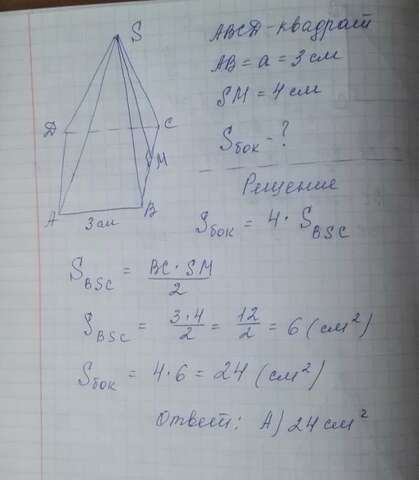 S
D
C
M
A
B
3 см
ABCD - квадрат
AB = a = 3 см
SM = 4 см
Sбок - ?
Решение
Sбок = 4 · S BSC
S BSC = BC · SM / 2
S BSC = 3 · 4 / 2 = 12 / 2 = 6 (см²)
Sбок = 4 · 6 = 24 (см²)
Ответ: А) 24 см²